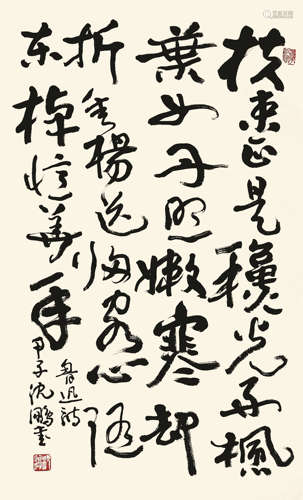 扶桑正是穐光好楓
葉如丹照嫩寒却
折垂楊送归客心随
东棹憶華年
魯迅詩
甲子沈鵬书